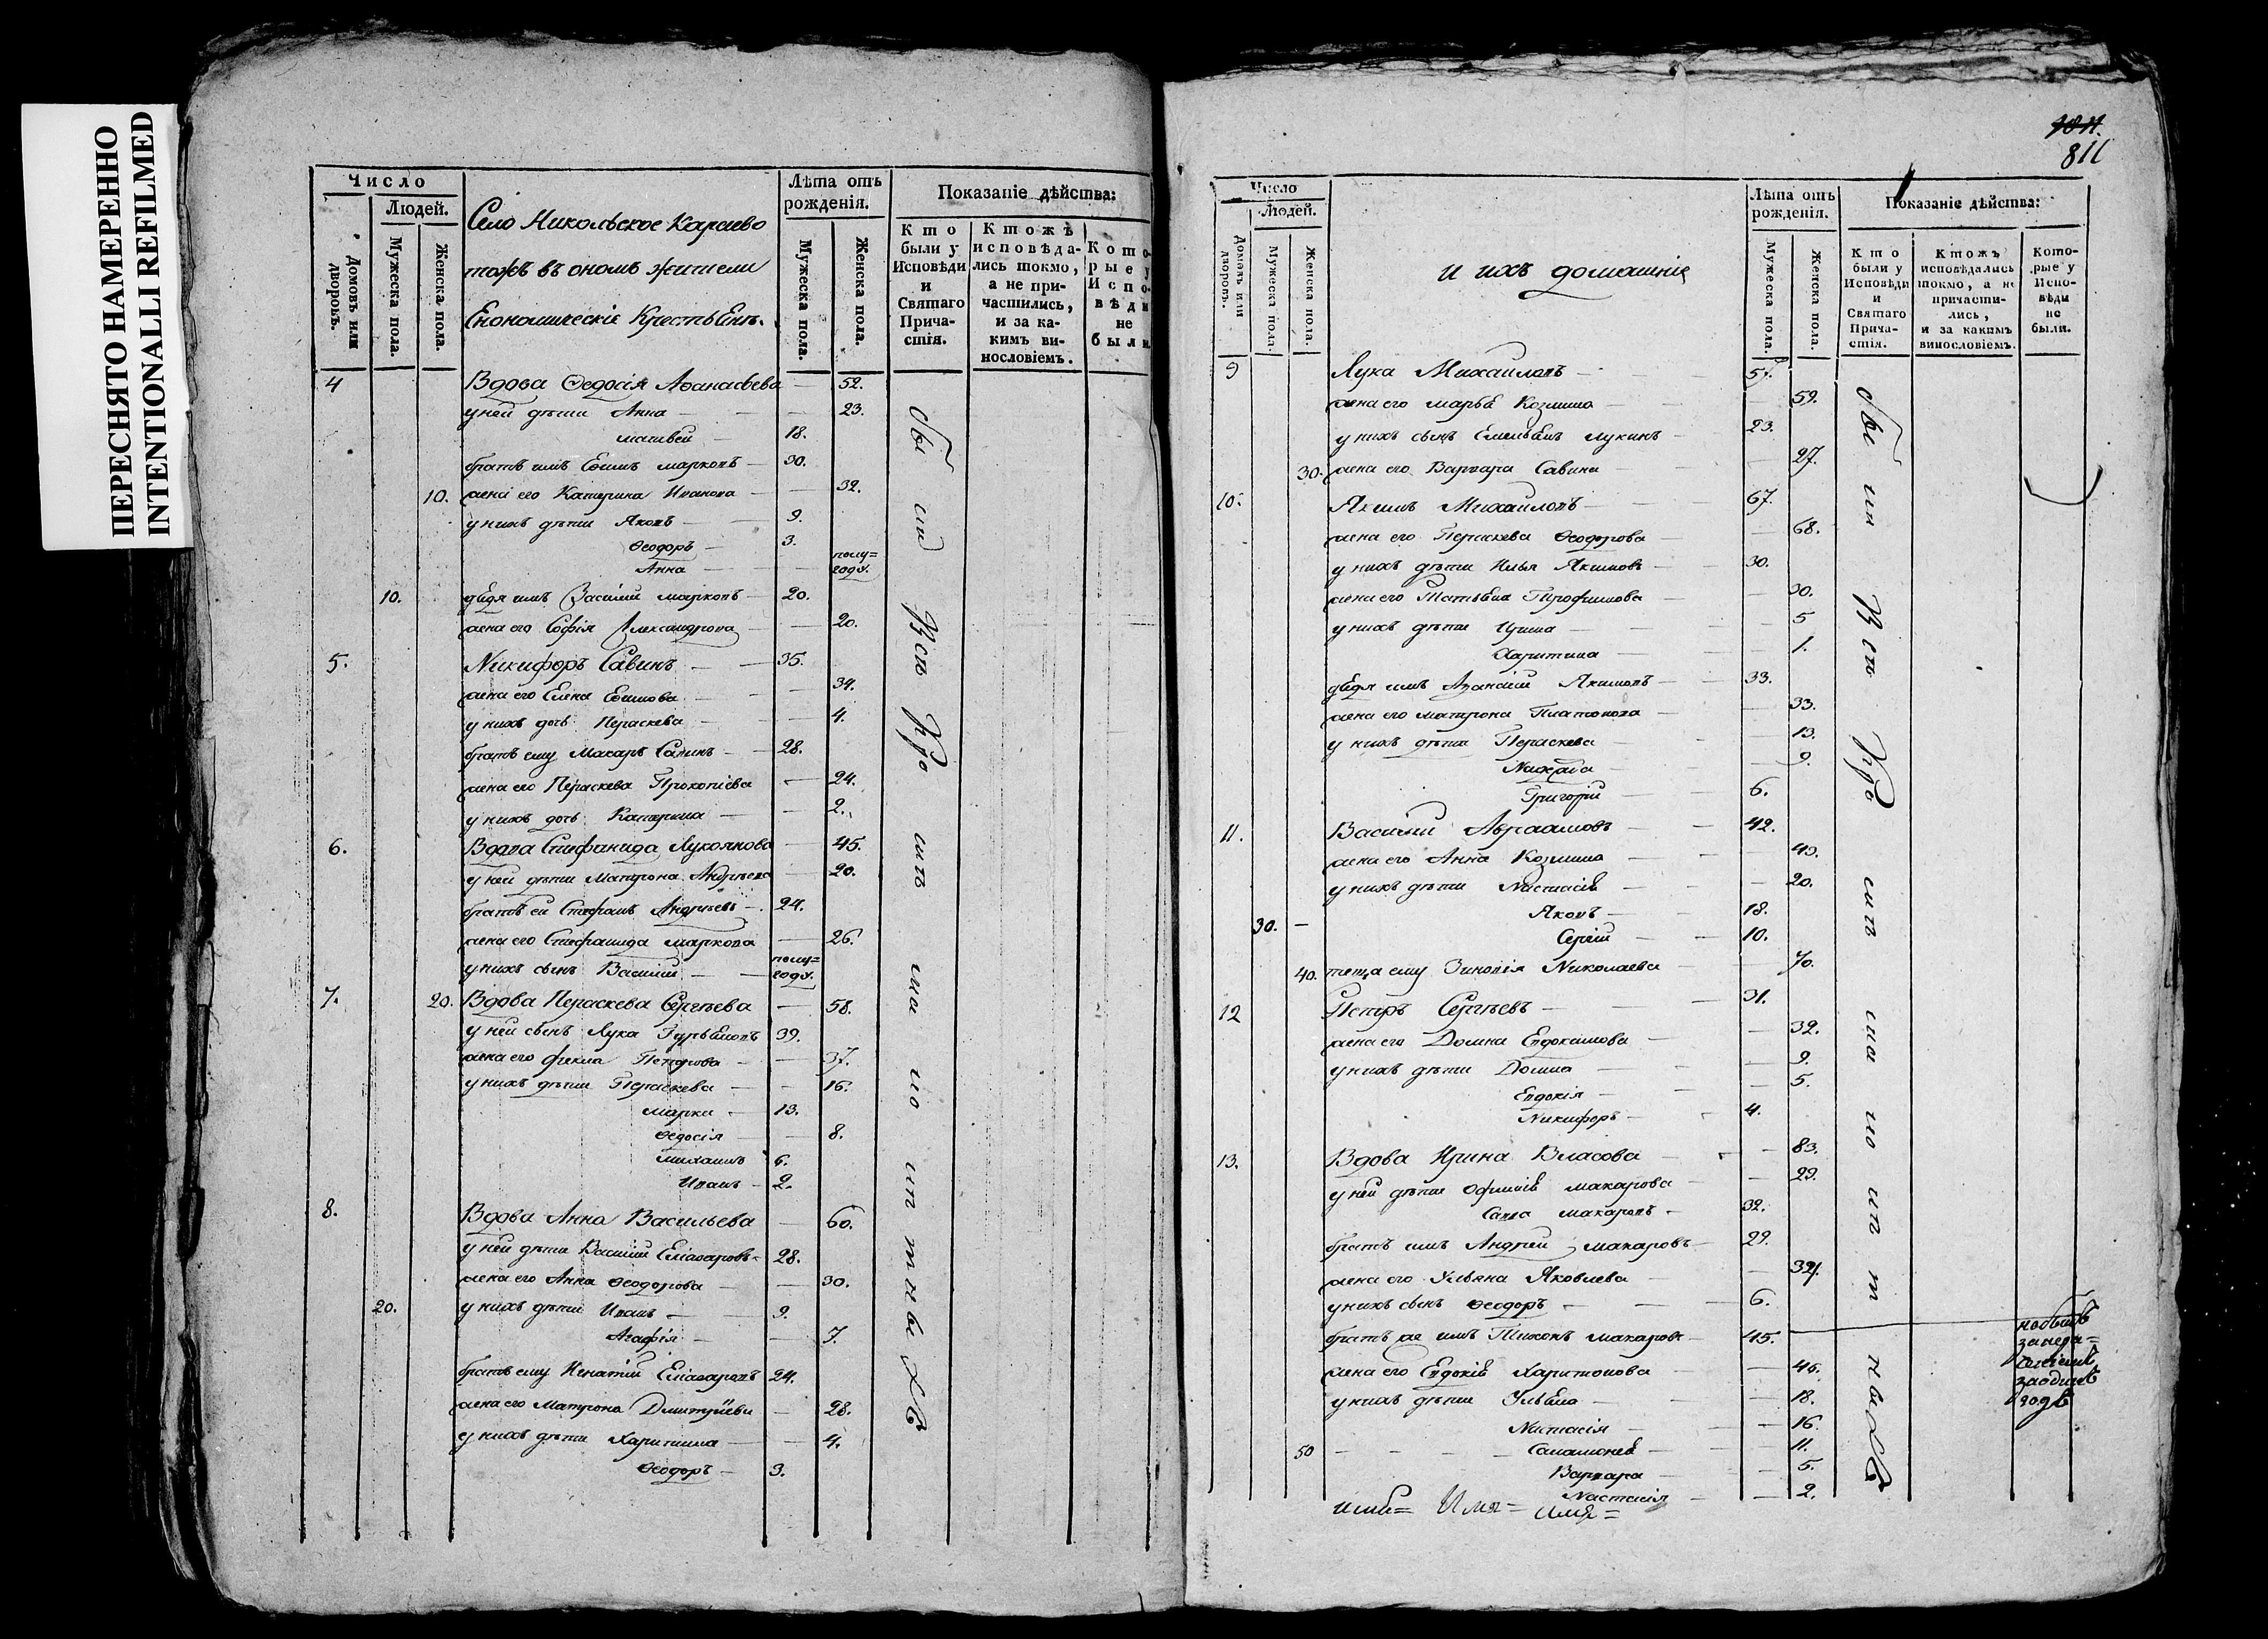 ПЕРЕСНЯТО НАМЕРЕННО
INTENTIONALLI REFILMED
Число
Людей.
Домовъ или дворовъ.
Мужеска пола.
Женска пола.
Село Никольское Караево
тожъ въ ономъ жители
Економическіе Крестьяне.
Лѣта отъ рожденія.
Мужеска пола.
Женска пола.
Показаніе дѣйства:
Кто были у Исповѣди и Святаго Причастія.
Ктожъ исповѣдались токмо, а не причастились, и за какимъ винословіемъ.
Которые у Исповѣди не были.
4 Вдова Ѳедосія Аѳанасьева — 52.
у ней дѣти Анна — 23.
матвей 18.
братъ имъ Ефимъ марковъ — 30.
10. жена его Катерина Иванова — 32.
у нихъ дѣти Яковъ — 9.
Ѳеодоръ — 3.
Анна — полу=году.
10. дядя имъ Василій марковъ — 20.
жена его Софія Александрова — 20.
5. Никифоръ Савинъ — 35.
жена его Елена Ефимова — 34.
у нихъ дочь Пераскева — 4.
братъ ему Макаръ Савинъ — 28.
жена его Пераскева Прокопіева — 24.
у нихъ дочь Катерина — 2.
6. Вдова Стефанида Лукоянова — 45.
у ней дѣти Матрона Андрѣева — 20.
братъ ей Стефанъ Андрѣевъ — 24.
жена его Стефанида маркова — 26.
у нихъ сынъ Василій — полу=году.
7. 20. Вдова Пераскева Сергѣева — 58.
у ней сынъ Лука Гурьяновъ 39.
жена его фекла Петрова — 37.
у нихъ дѣти Пераскева — 16.
марка — 13.
Ѳедосія — 8.
михаилъ 6.
Иванъ — 2.
8. Вдова Анна Васильева — 60.
у ней дѣти Василій Еліазаровъ 28.
жена его Анна Ѳеодорова — 30.
20. у нихъ дѣти Иванъ — 9.
Агафія — 7.
братъ ему Игнатій Еліазаровъ 24.
жена его Матрона Дмитріева — 28.
у нихъ дѣти Харитина — 4.
Ѳеодоръ — 3.
811
Число
Людей.
Домовъ или дворовъ.
Мужеска пола.
Женска пола.
и ихъ домашніе
Лѣта отъ рожденія.
Мужеска пола.
Женска пола.
Показаніе дѣйства:
Кто были у Исповѣди и Святаго Причастія.
Ктожъ исповѣдались токмо, а не причастились, и за какимъ винословіемъ.
Которые у Исповѣди не были.
9 Лука Михаиловъ — 57.
жена его марья Козмина — 59.
у нихъ сынъ Емельянъ лукинъ — 23.
30. жена его Варвара Савина — 27.
10. Якимъ Михаиловъ — 67.
жена его Пераскева Ѳеодорова — 68.
у нихъ дѣти Илья Якимовъ — 30.
жена его Татьяна Трофимова — 30.
у нихъ дѣти Ирина — 5
Харитина — 1.
дядя имъ Аѳанасій Якимовъ — 33.
жена его матрона Платонова — 33.
у нихъ дѣти Пераскева — 13.
Надежда — 9.
Григорій — 6.
11. Василій Авраамовъ — 42.
жена его Анна Козмина — 40.
у нихъ дѣти Настасія — 20.
Яковъ — 18.
30. — Сергій — 10.
40. теща ему Зиновія Николаева — 70.
12 Петръ Сергѣевъ — 31.
жена его Домна Евдокимова — 32.
у нихъ дѣти Домна — 9.
Евдокія — 5.
Никифоръ — 4.
13. Вдова Ирина Власова — 83.
у ней дѣти Офимія макарова — 22.
Савва макаровъ — 32.
братъ имъ Андрей макаровъ — 29.
жена его Ульяна Яковлева — 32.
у нихъ сынъ Ѳеодоръ — 6.
братъ же имъ Тихонъ макаровъ — 45.
жена его Евдокія Харитонова — 46.
у нихъ дѣти Ульяна — 18.
Настасія — 16.
50 — Саламонея — 11.
Варвара — 5.
Настасія — 2.